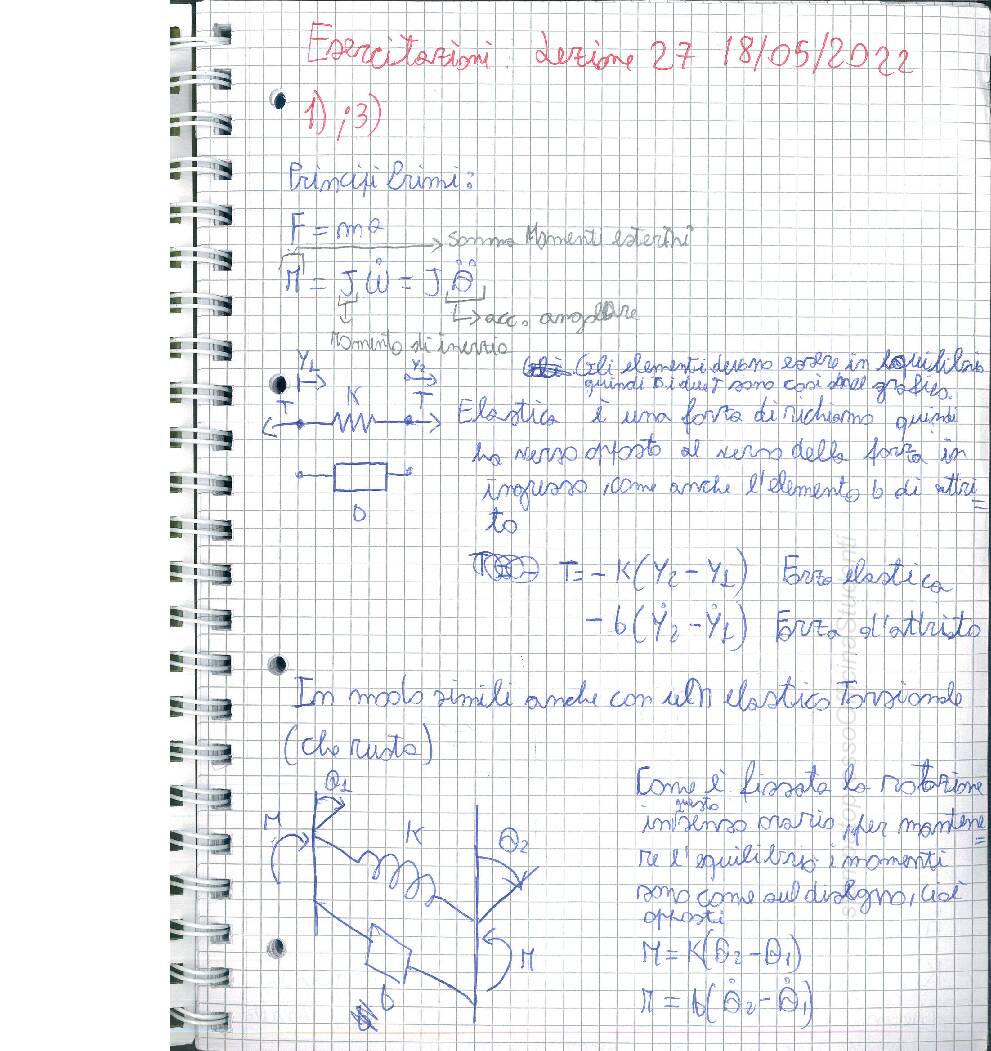 Esercitazioni: Lezione 27 18/05/2022
1) ; 3)
Principi Primi:
F = ma
Somma Momenti esterini
M = J ω̊ = J θ̈
acc. angolare
Momento di inerzia
Y1 Y2
Gli elementi devono essere in equilibrio
quindi i due T sono così nel grafico.
T K T
Elastica è una forza di richiamo quindi
ha verso opposto al verso della forza in
ingresso, come anche l'elemento b di attri=
to
b
T = - K(Y2 - Y1) Forza elastica
- b(Ẏ2 - Ẏ1) Forza d'attrito
In modo simili anche con un elastico Torsionale
(che ruota)
θ1
M K θ2
M
b
Come è fissata la rotazione
in senso orario, questo per mantene=
re l'equilibrio i momenti
sono come sul disegno, cioè
opposti
M = K(θ2 - θ1)
M = b(θ̇2 - θ̇1)